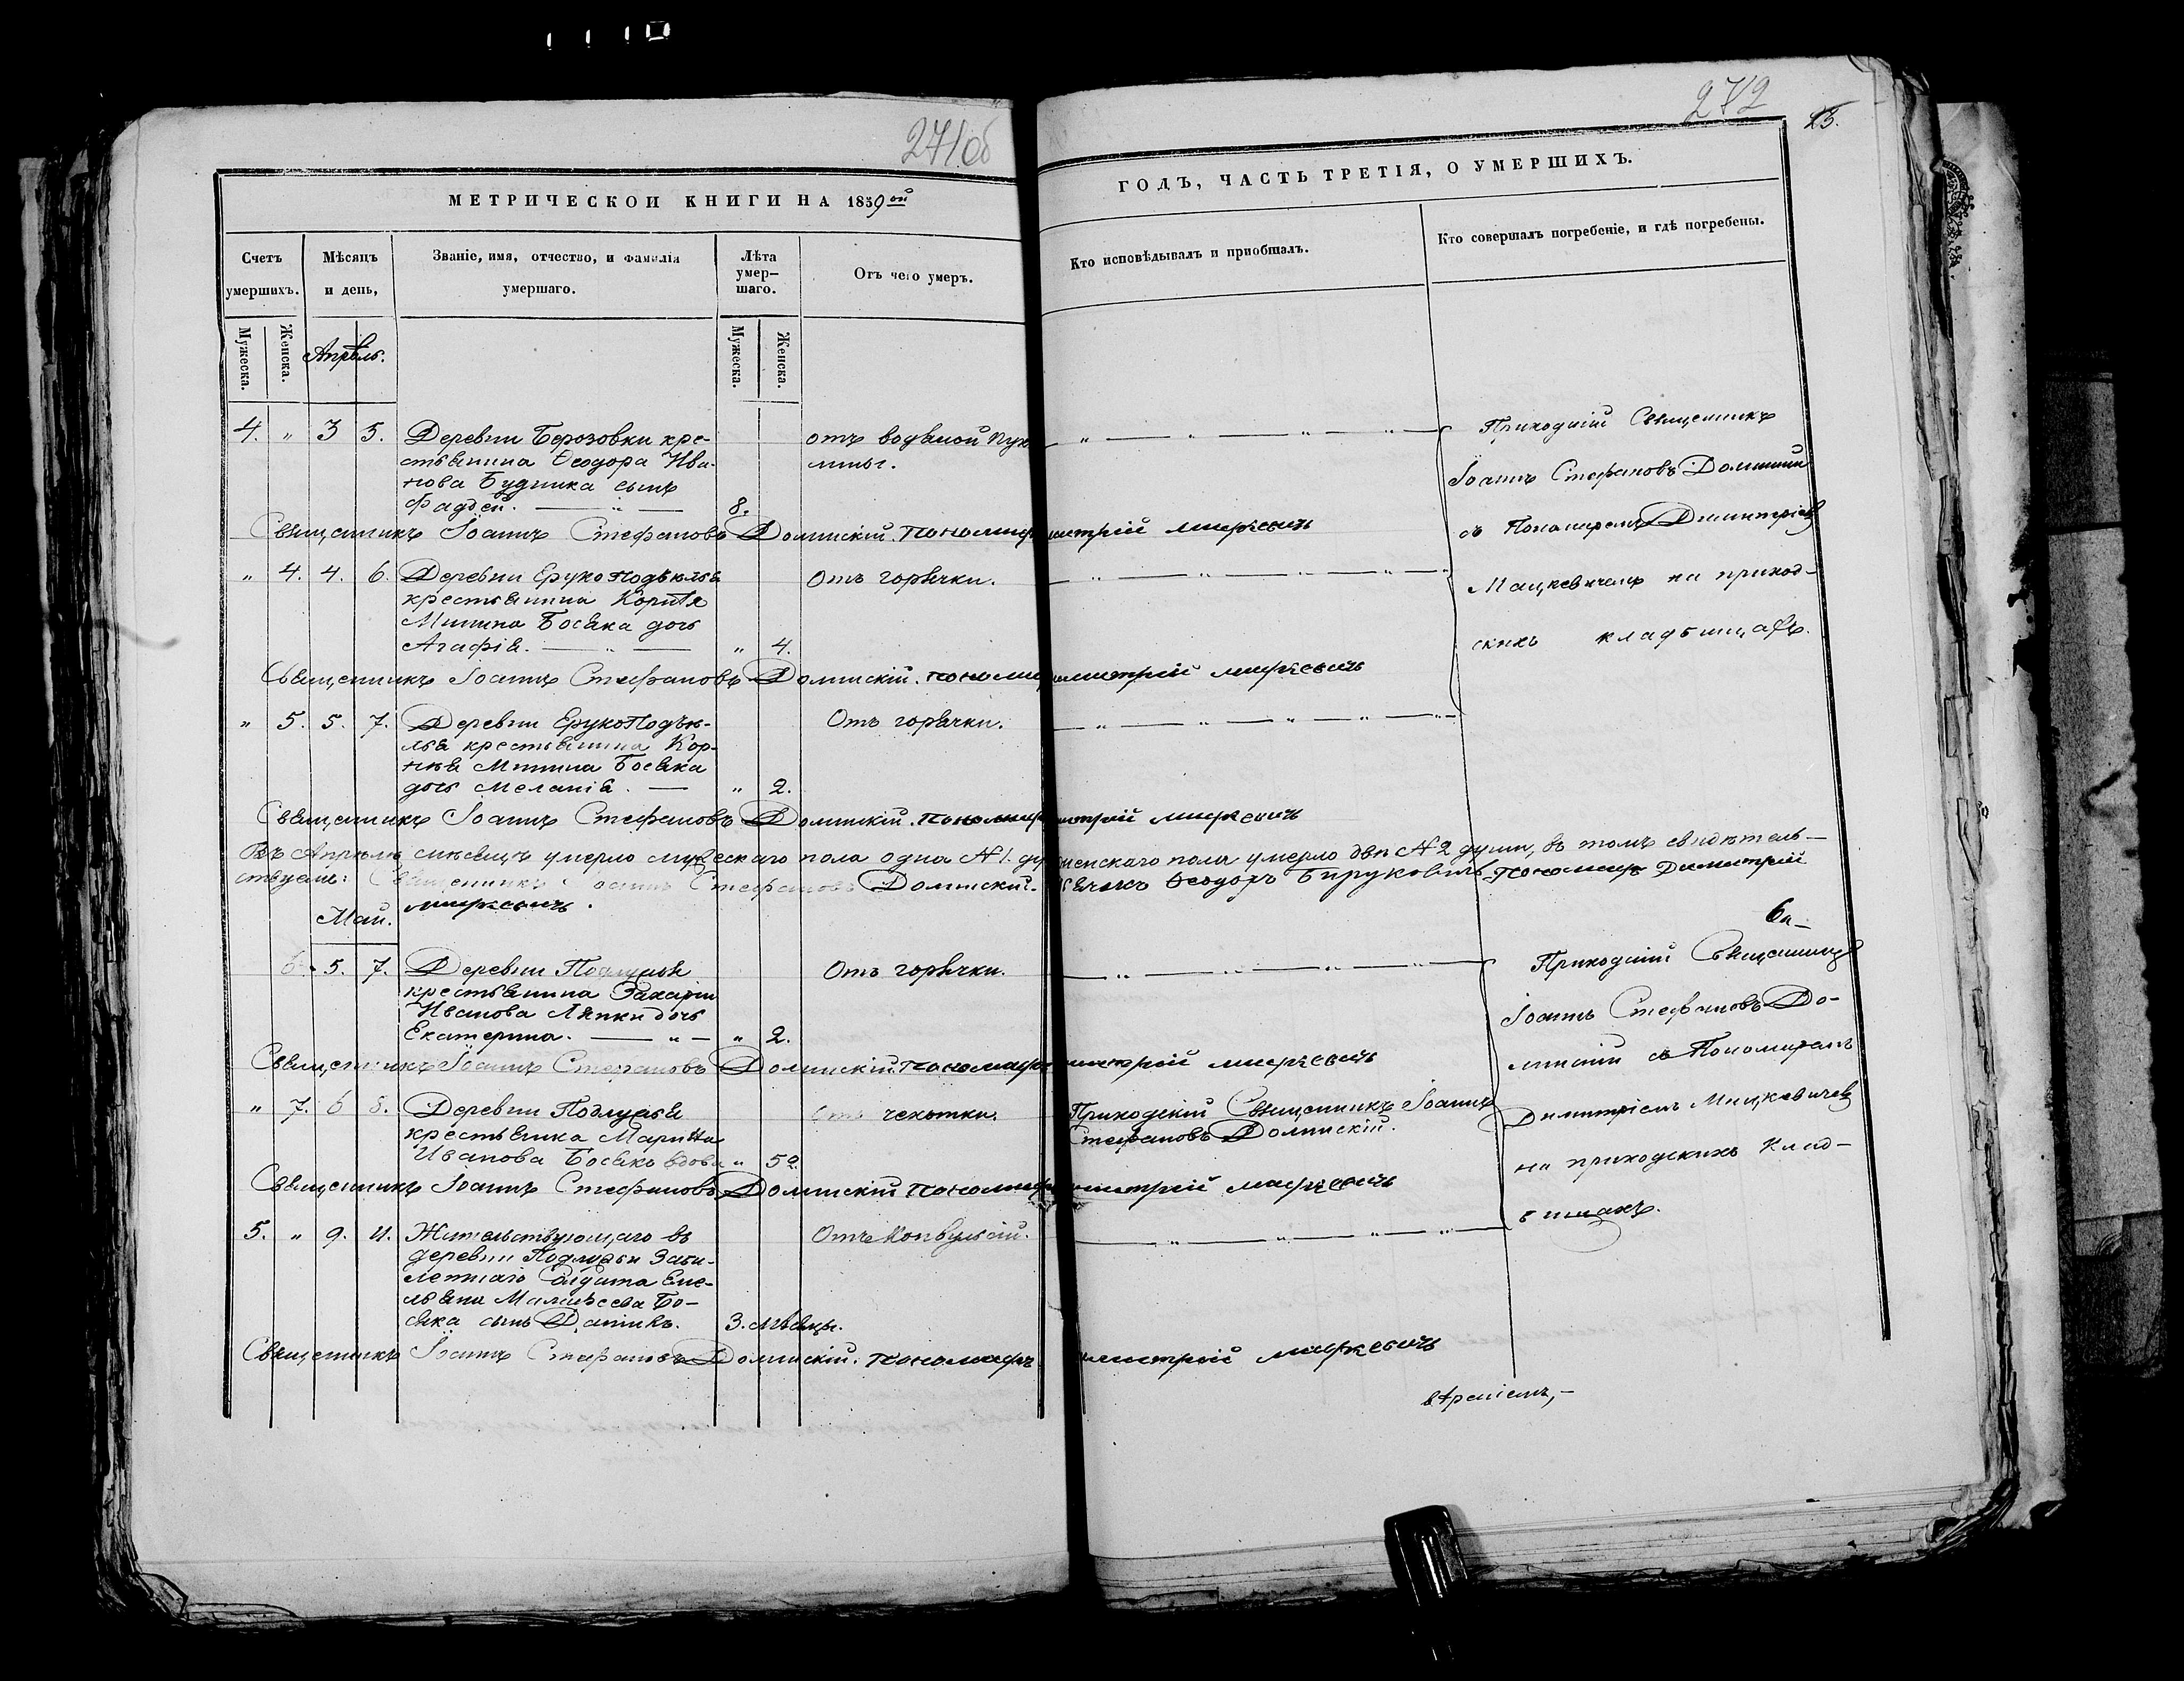 271об
272
25.
МЕТРИЧЕСКОЙ КНИГИ НА 1859ой
ГОДЪ, ЧАСТЬ ТРЕТІЯ, О УМЕРШИХЪ.
Счетъ умершихъ.
Мѣсяцъ и день,
Званіе, имя, отчество, и фамилія умершаго.
Лѣта умершаго.
Отъ чего умеръ.
Кто исповѣдывалъ и пріобщалъ.
Кто совершалъ погребеніе, и гдѣ погребены.
Мужеска.
Женска.
Апрѣль.
Мужеска.
Женска.
4. " 3 5. Деревни Берозовки кре-
стьянина Ѳеодора Ива-
нова Будника сынъ
Фаддей.
8.
отъ водяной
Приходскій Священникъ
Іоаннъ Стефановъ Долинскій
съ Пономаремъ Димитріемъ
Мацкевичемъ на приход-
скихъ кладбищахъ.
Священникъ Іоаннъ Стефановъ Долинскій. Пономарь Димитрій Мацкевичъ
" 4. 4. 6. Деревни
крестьянина Корнія
Минина Босяка дочь
Агафія. " 4.
Отъ горячки.
Священникъ Іоаннъ Стефановъ Долинскій. Пономарь Димитрій Мацкевичъ
" 5. 5. 7. Деревни
крестьянина Кор-
нія Минина Босяка
дочь Меланія. " 2.
Отъ горячки.
Священникъ Іоаннъ Стефановъ Долинскій. Пономарь Димитрій Мацкевичъ
Въ Апрѣлѣ мѣсяцѣ умерло мужескаго пола одна №1. женскаго пола умерло двѣ №2 души, въ томъ свидѣтель-
ствуемъ: Священникъ Іоаннъ Стефановъ Долинскій. Ѳеодоръ Пономарь Димитрій
Мацкевичъ.
Май.
6. 5. 7. Деревни Подлужья
крестьянина Захарія
Иванова Ляпки дочь
Екатерина. " 2.
Отъ горячки.
Приходскій Священникъ
Іоаннъ Стефановъ До-
линскій съ Пономаремъ
Димитріемъ Мацкевичемъ
на приходскихъ клад-
бищахъ.
Священникъ Іоаннъ Стефановъ Долинскій Пономарь Димитрій Мацкевичъ
" 7. 6 8. Деревни Подлужья
крестьянка Марина
Иванова Босяко вдова " 52.
Отъ чехотки.
Приходскій Священникъ Іоаннъ
Стефановъ Долинскій.
Священникъ Іоаннъ Стефановъ Долинскій Пономарь Димитрій Мацкевичъ
5. " 9. 11. Жительствующаго въ
деревни Подлужьи
Солдата Еме-
льяна Босяка сынъ
3. мѣсяцы.
Отъ Конвульсій.
Священникъ Іоаннъ Стефановъ Долинскій. Пономарь Димитрій Мацкевичъ